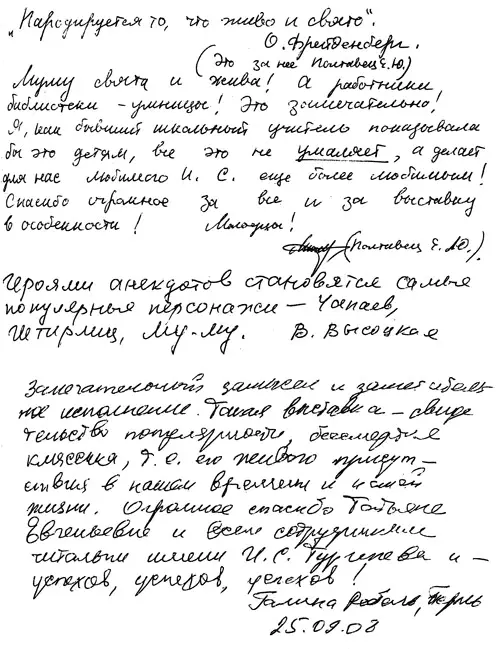 „Пародируется то, что живо и свято".
О. Фрейденберг.
(Это за нее Полтавец Е.Ю.)
Муму свята и жива! А работники
библиотеки - умницы! Это замечательно!
Я, как бывший школьный учитель показывала
бы это детям, все это не умаляет, а делает
для нас любимого И. С. еще более любимым!
Спасибо огромное за все и за выставку
в особенности! Молодцы!
(Полтавец Е. Ю.)
Героями анекдотов становятся самые
популярные персонажи — Чапаев,
Штирлиц, Му-му. В. Высоцкая
Замечательный замысел и замечатель
ное исполнение. Такая выставка - свиде
тельство популярности, бессмертия
классика, т. е. его живого присут-
ствия в нашем времени и нашей
жизни. Огромное спасибо Татьяне
Евгеньевне и всем сотрудникам
читальни имени И.С. Тургенева и -
успехов, успехов, успехов!
Галина Ребель, Пермь
25.09.08